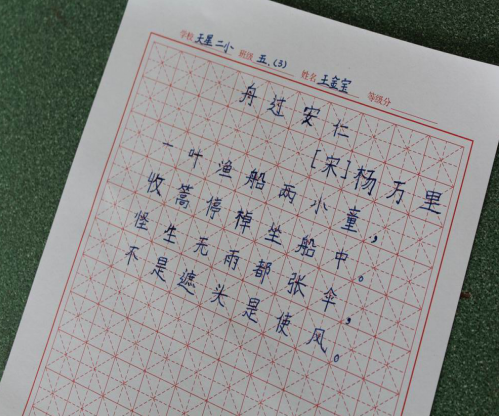 学校 天星二小 班级 五.(3) 姓名 王金宝 等级分
舟过安仁
[宋]杨万里
一叶渔船两小童，
收篙停棹坐船中。
怪生无雨都张伞，
不是遮头是使风。